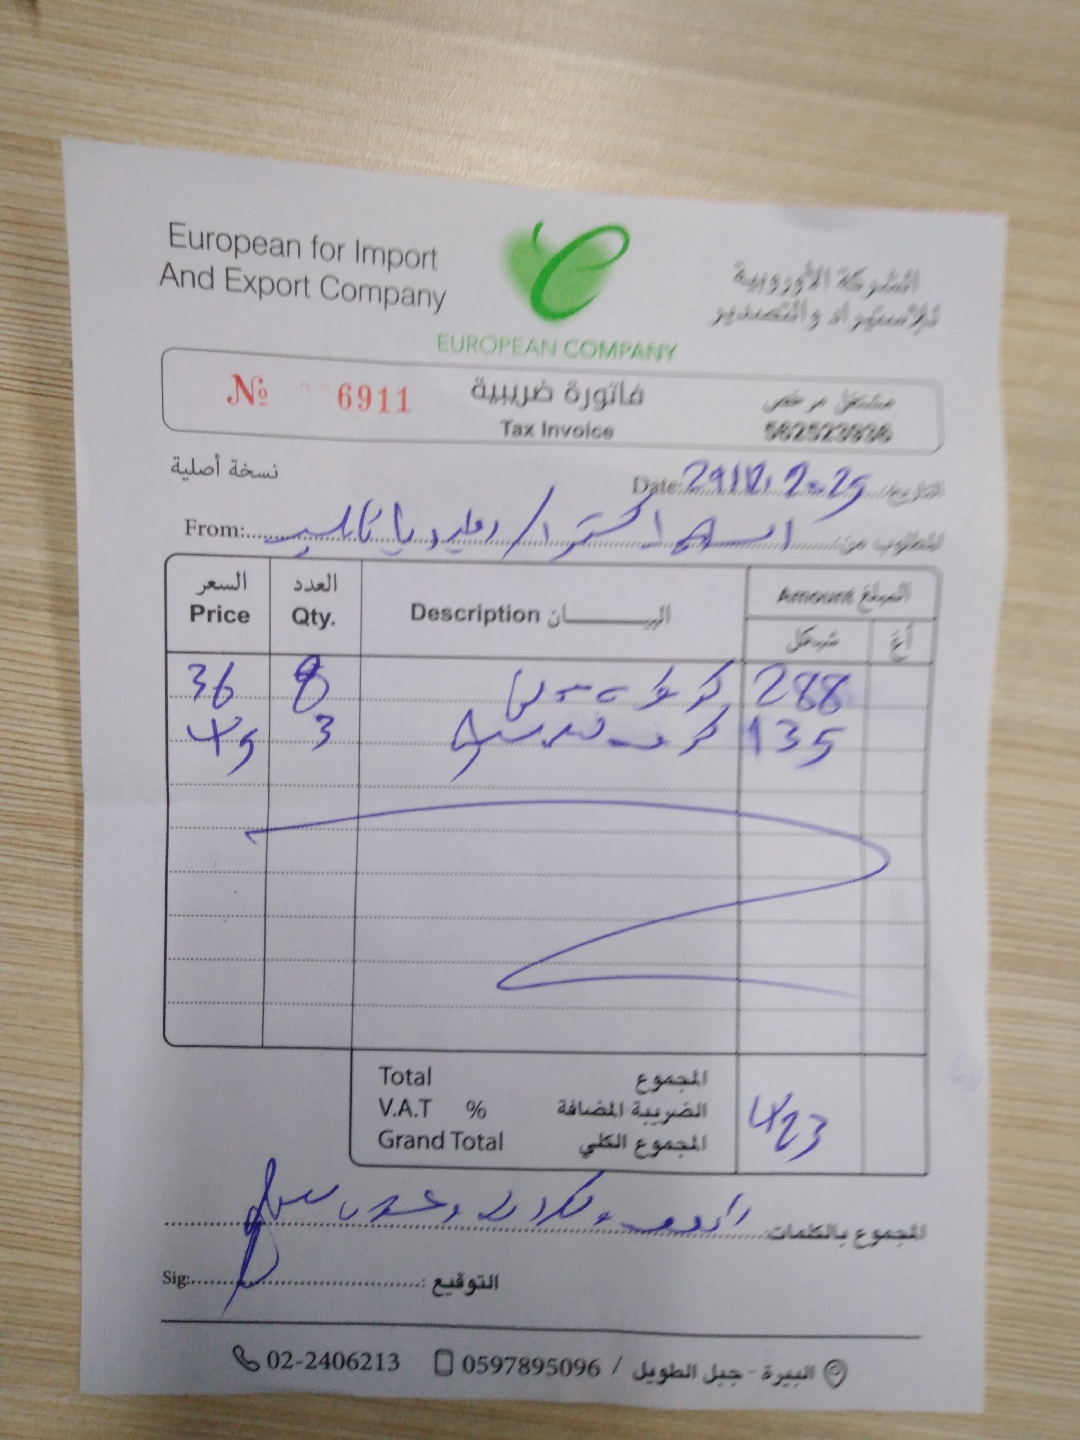 European for Import
And Export Company
الشركة الأوروبية
للاستيراد والتصدير
EUROPEAN COMPANY
№ 6911
فاتورة ضريبية
Tax Invoice
مشتغل مرخص
نسخة أصلية
Date: 29/12/2025 التاريخ:
From: المطلوب من:
السعر
Price
العدد
Qty.
Description البيـــــــان
Amount المبلغ
شيكل
أغ
36 8 288
45 3 135
Total المجموع
V.A.T % الضريبة المضافة
Grand Total المجموع الكلي
423
المجموع بالكلمات:
Sig: التوقيع:
02-2406213 0597895096 / البيرة - جبل الطويل